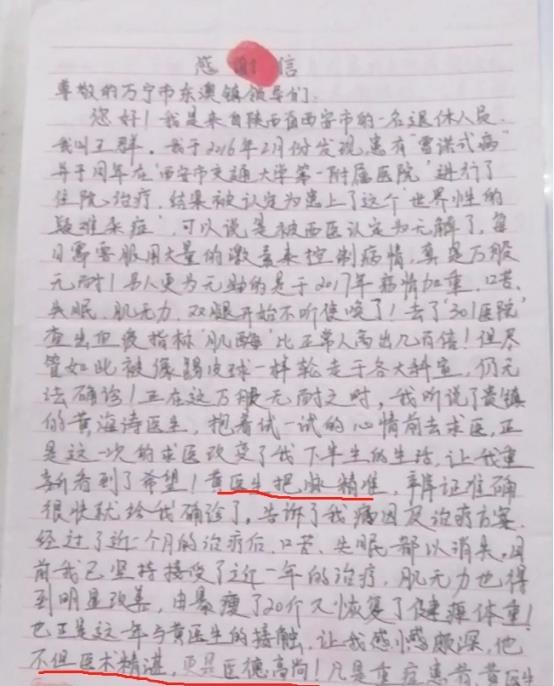 感谢信
尊敬的万宁市东澳镇领导们:
您好!我是来自陕西省西安市的一名退休人员
我叫王群。我于2016年2月份发现患有“雷诺式病”
并于同年在“西安市交通大学第一附属医院”进行了
住院治疗,结果被认定为患上了这个“世界性的
疑难杂症”,可以说是被西医认定为无解了,每
日需要服用大量的激素来控制病情,真是万般
无耐!另人更为无助的是于2017年病情加重,口苦、
失眠、肌无力,双腿开始不听使唤了!去了“301医院”
查出血液指标“肌酶”比正常人高出几百倍!但尽
管如此被像踢皮球一样轮走于各大科室,仍无
法确诊!正在这万般无耐之时,我听说了贵镇
的黄海诗医生,抱着试一试的心情前去求医,正
是这一次的求医改变了我下半生的生活,让我重
新看到了希望!黄医生把脉精准,辩证准确
很快就给我确诊了,告诉了我病因及治疗方案
经过了近一个月的治疗后,口苦、失眠都以消失,目
前我已坚持接受了近一年的治疗,肌无力也得
到明显改善,由暴瘦了20斤又恢复了健康体重!
也正是这一年与黄医生的接触,让我感慨颇深,他
不但医术精湛,更是医德高尚!凡是重症患者,黄医生